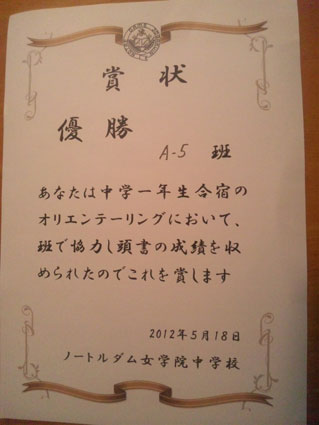 賞状
優勝
A-5 班
あなたは中学一年生合宿の
オリエンテーリングにおいて、
班で協力し頭書の成績を収
められたのでこれを賞します
2012年5月18日
ノートルダム女学院中学校